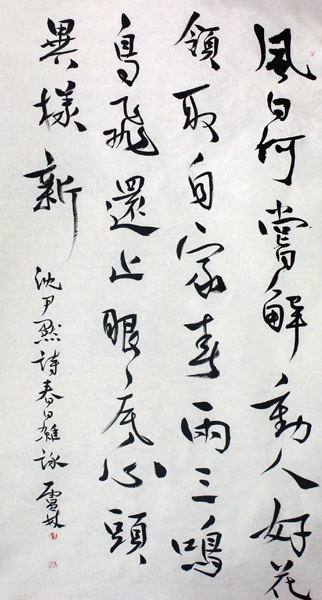 風日何嘗解動人好花
領取自家春兩三鳴
鳥飛還止眼底心頭
異樣新
沈尹默詩春日雜詠